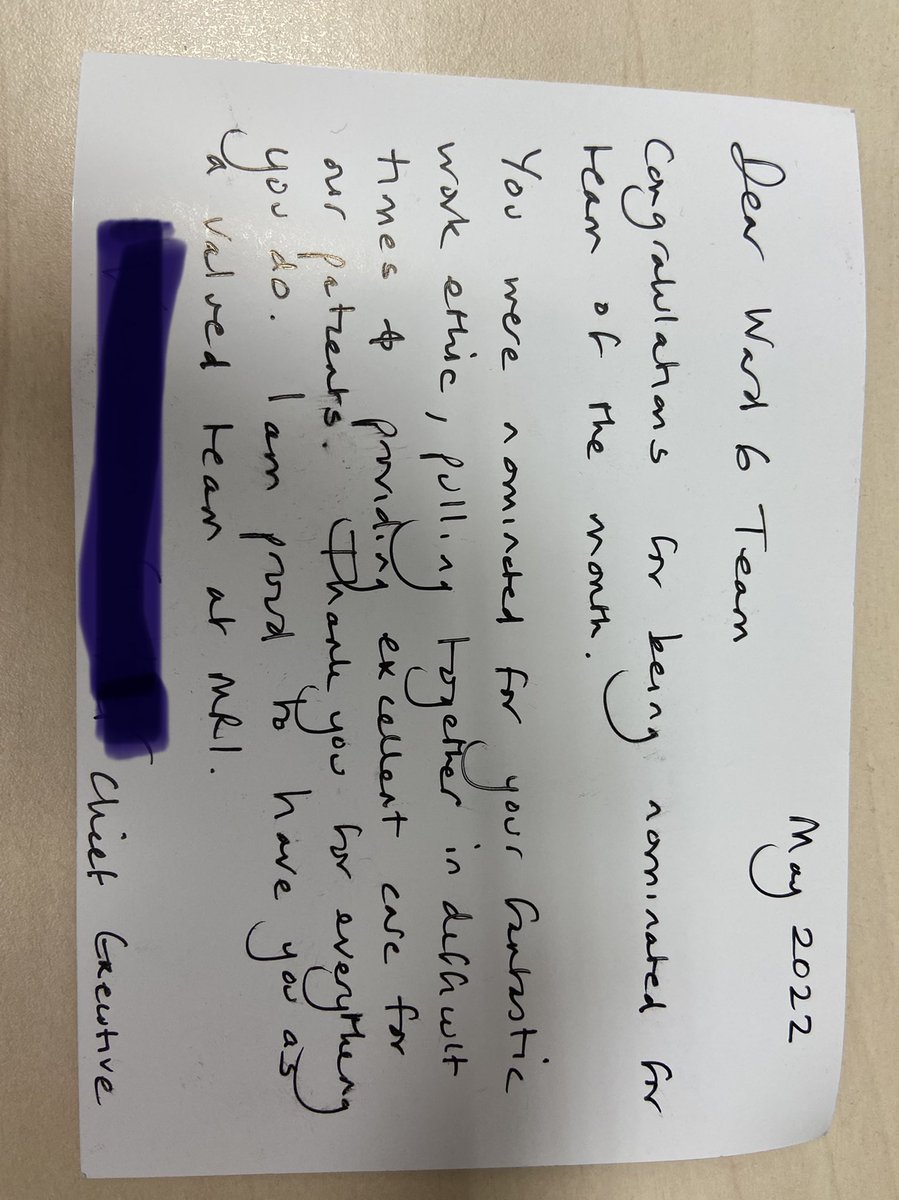 May 2022
Dear Ward 6 Team
Congratulations for being nominated for
team of the month.
You were nominated for your fantastic
work ethic, pulling together in difficult
times & providing excellent care for
our patients. Thank you for everything
you do. I am proud to have you as
a valued team at MRI.
Chief Executive